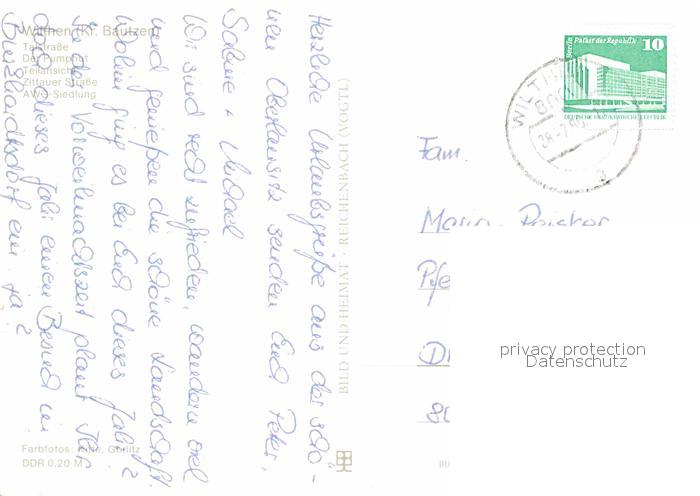 Wilthen (Kr. Bautzen)
Talstraße
Der Pumphut
Teilansicht
Zittauer Straße
AWG-Siedlung
Herzliche Urlaubsgrüße aus der schö-
nen Oberlausitz senden Euch Peter,
Sabine + Michael
Wir sind recht zufrieden, wandern viel
und genießen die schöne Landschaft.
Wohin ging es bei Euch dieses Jahr?
In der Vorweihnachtszeit plant Ihr
doch dieses Jahr einen Besuch in
Burkhardtsdorf ein, ja?
BILD UND HEIMAT · REICHENBACH (VOGTL)
Farbfotos: Görlitz
DDR 0,20 M
Berlin Palast der Republik 10
DEUTSCHE DEMOKRATISCHE REPUBLIK
WILTHEN
a
Fam.
privacy protection
Datenschutz